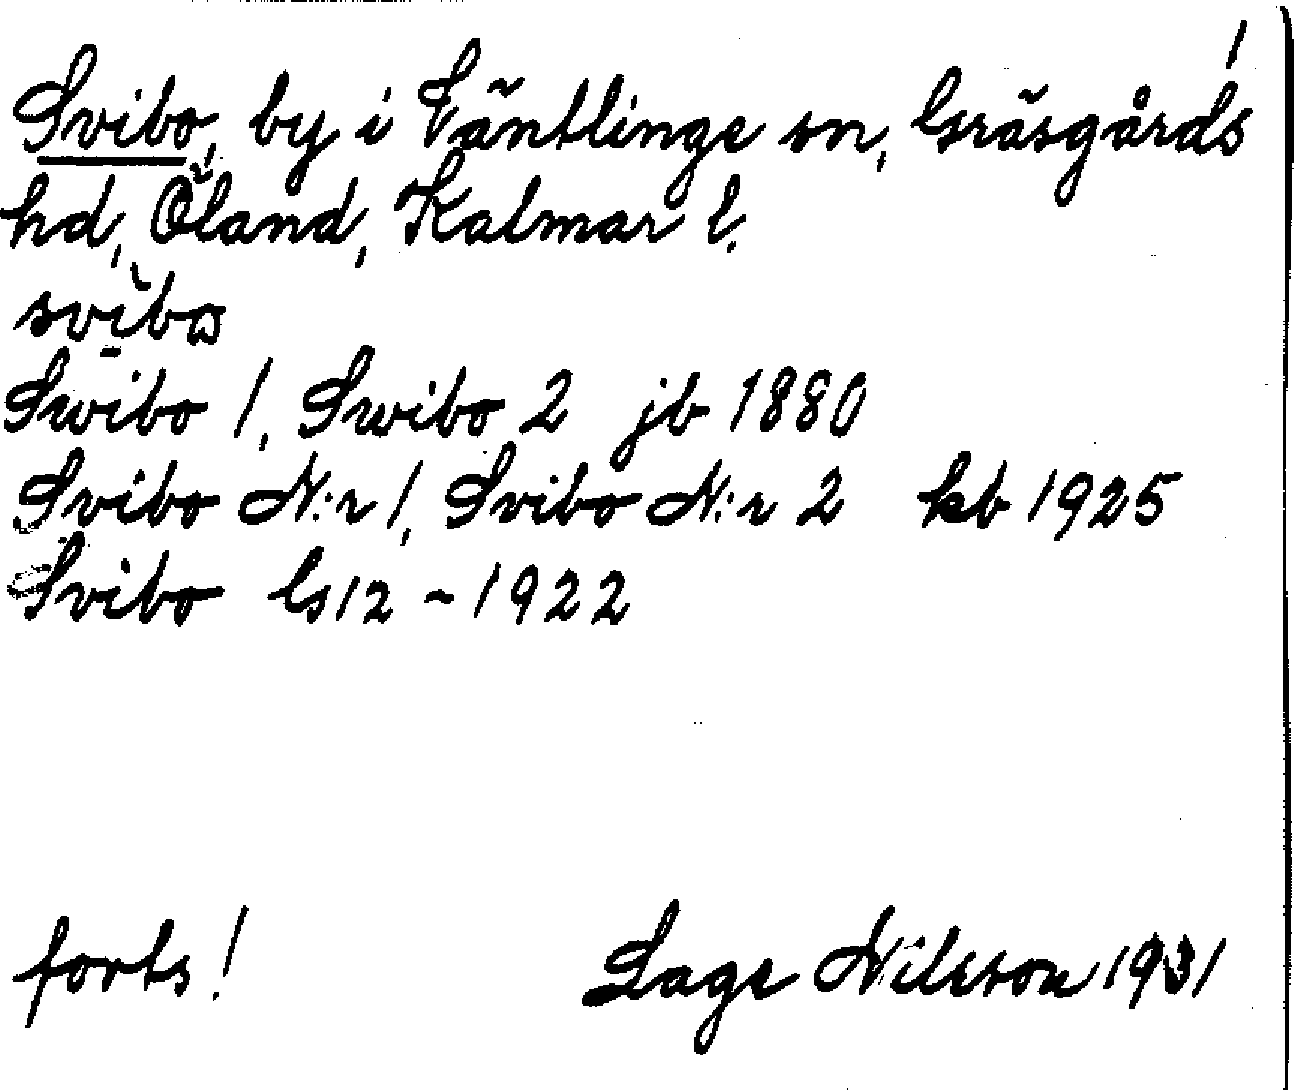 1
Svibo, by i Ventlinge sn, Gräsgårds
hd, Öland, Kalmar l.
Swibo 1, Swibo 2 jb 1880
Svibo N:r 1, Svibo N:r 2 kb 1925
Svibo Gs12 - 1922
forts! Lage Nilsson 1931